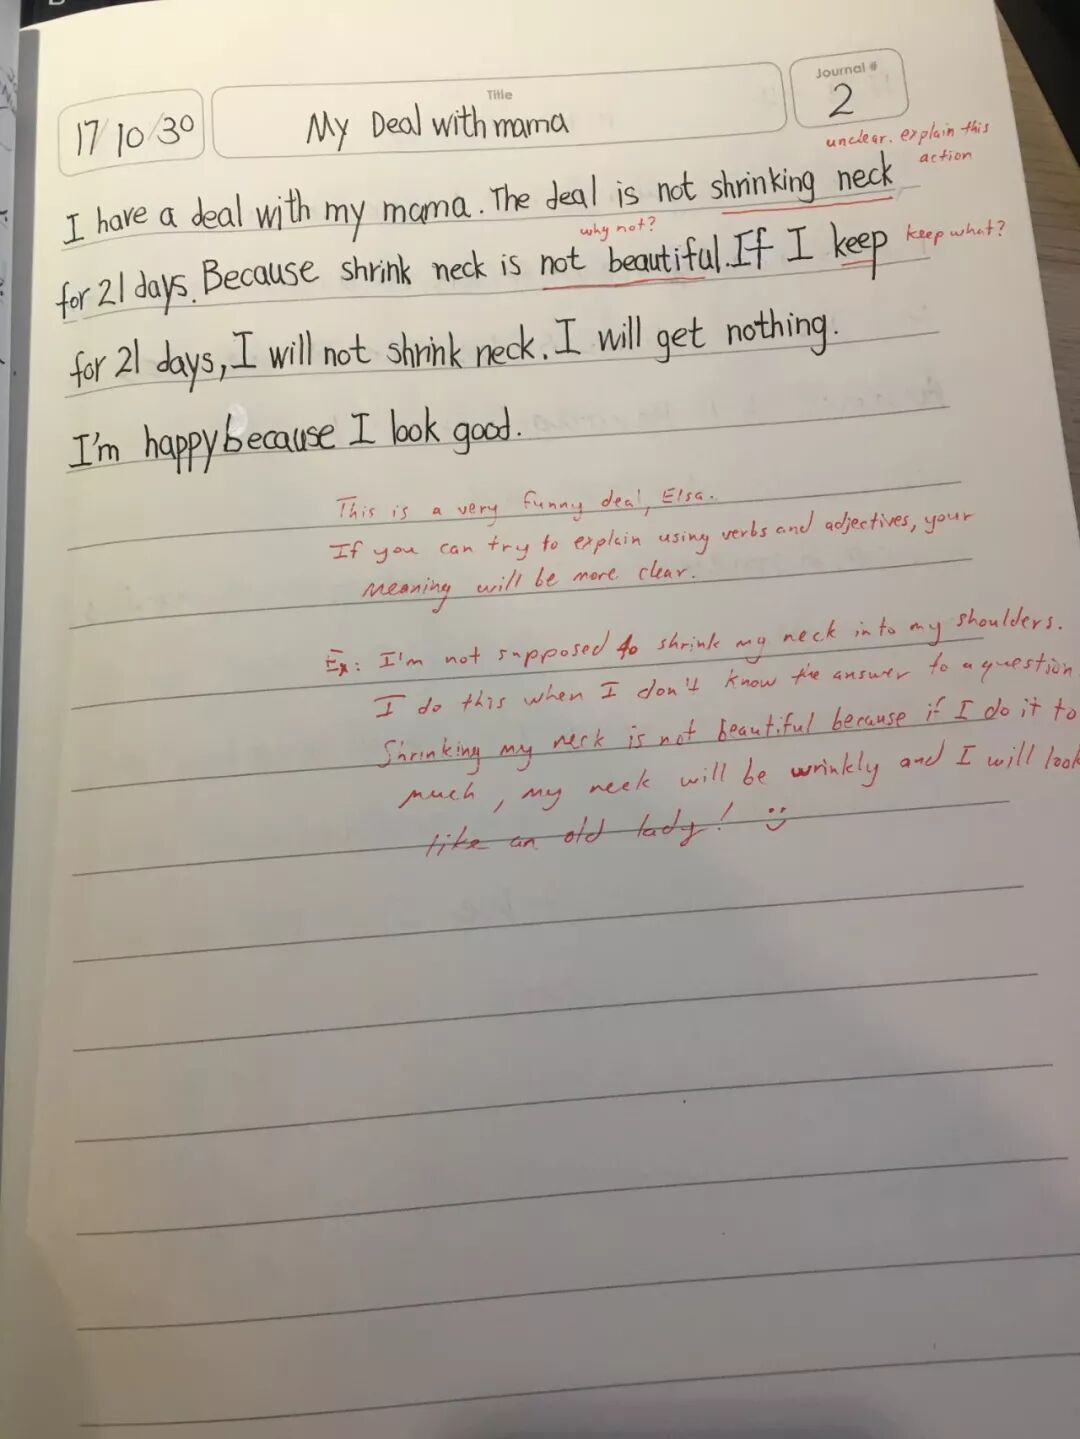 Title
Journal #
17/10/30
My Deal with mama
2
unclear. explain this
action
I have a deal with my mama. The deal is not shrinking neck
why not?
keep what?
for 21 days. Because shrink neck is not beautiful. If I keep
for 21 days, I will not shrink neck. I will get nothing.
I'm happy because I look good.
This is a very funny deal, Elsa.
If you can try to explain using verbs and adjectives, your
meaning will be more clear.
Ex: I'm not supposed to shrink my neck into my shoulders.
I do this when I don't know the answer to a question
Shrinking my neck is not beautiful because if I do it to
much, my neck will be wrinkly and I will look
like an old lady!